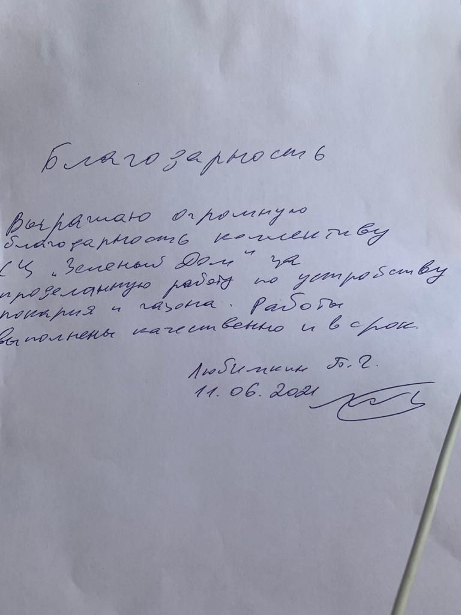 Благодарность
Выражаю огромную
благодарность коллективу
СЦ „Зеленый Дом" за
проделанную работу по устройству
и газона. Работы
выполнены качественно и в срок.
Любимкин П.Г.
11.06.2021